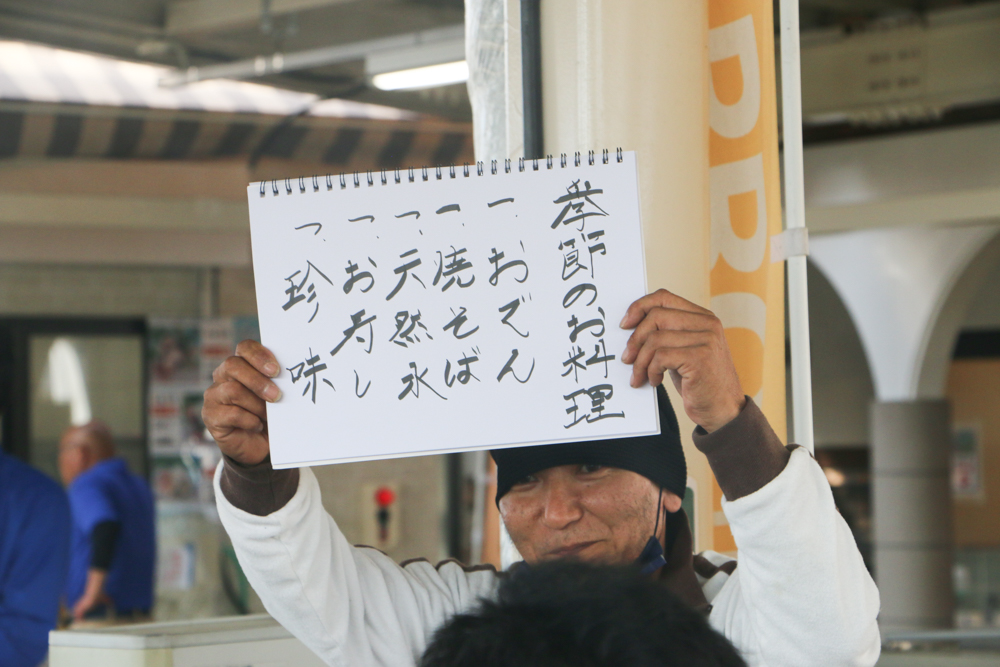 季節のお料理
一、おでん
一、焼そば
一、天然氷
一、お寿し
一、珍味